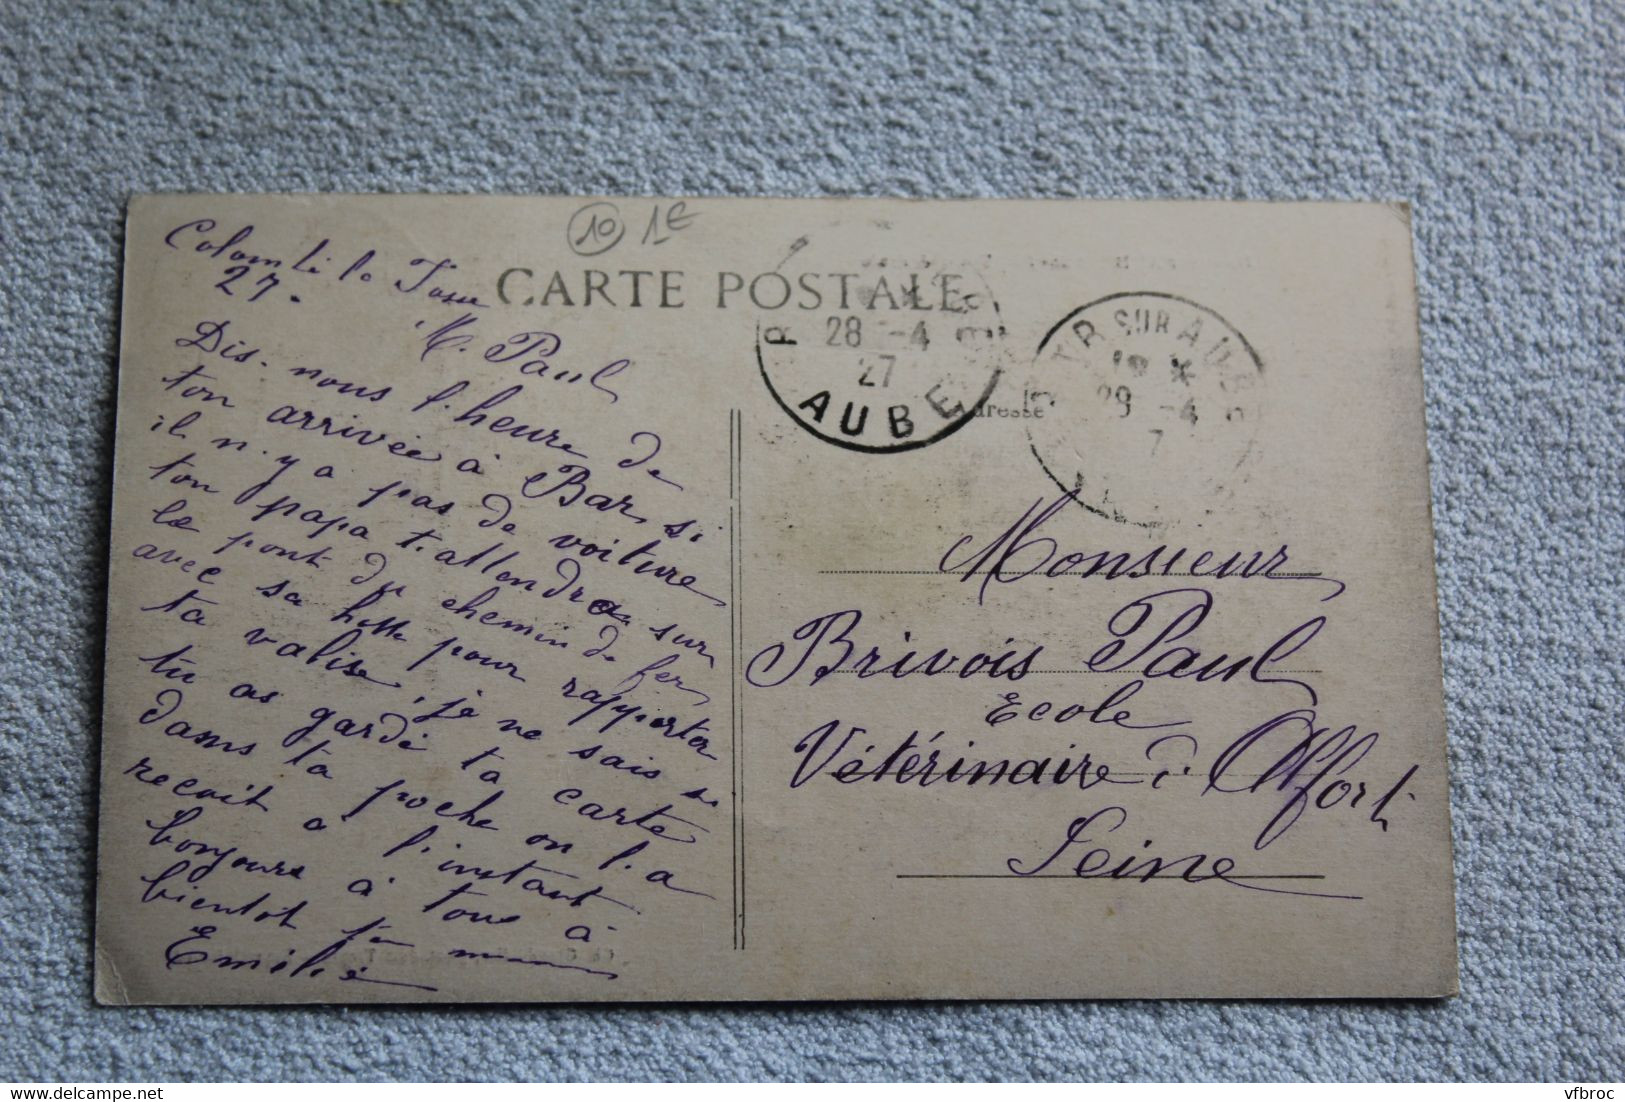 10 1€
CARTE POSTALE
Colombé le
27.
M. Paul
Dis-nous l'heure de
ton arrivée à Bar, si
il n.y a pas de voiture
ton papa t.attendra sur
le pont du chemin de fer
avec sa hotte pour rapporter
ta valise, je ne sais si
tu as gardé ta carte
dans ta poche on l.a
recuit à l'instant
bonjour à tous à
bientot
Emilie
28 -4
27
AUBE
BAR SUR AUBE
29 -4
7
Adresse
Monsieur
Brivois Paul
Ecole
Vétérinaire d. Alfort
Seine
vfbroc